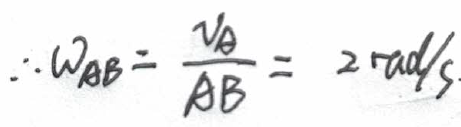 ∴ ω_AB = v_A / AB = 2 rad/s.